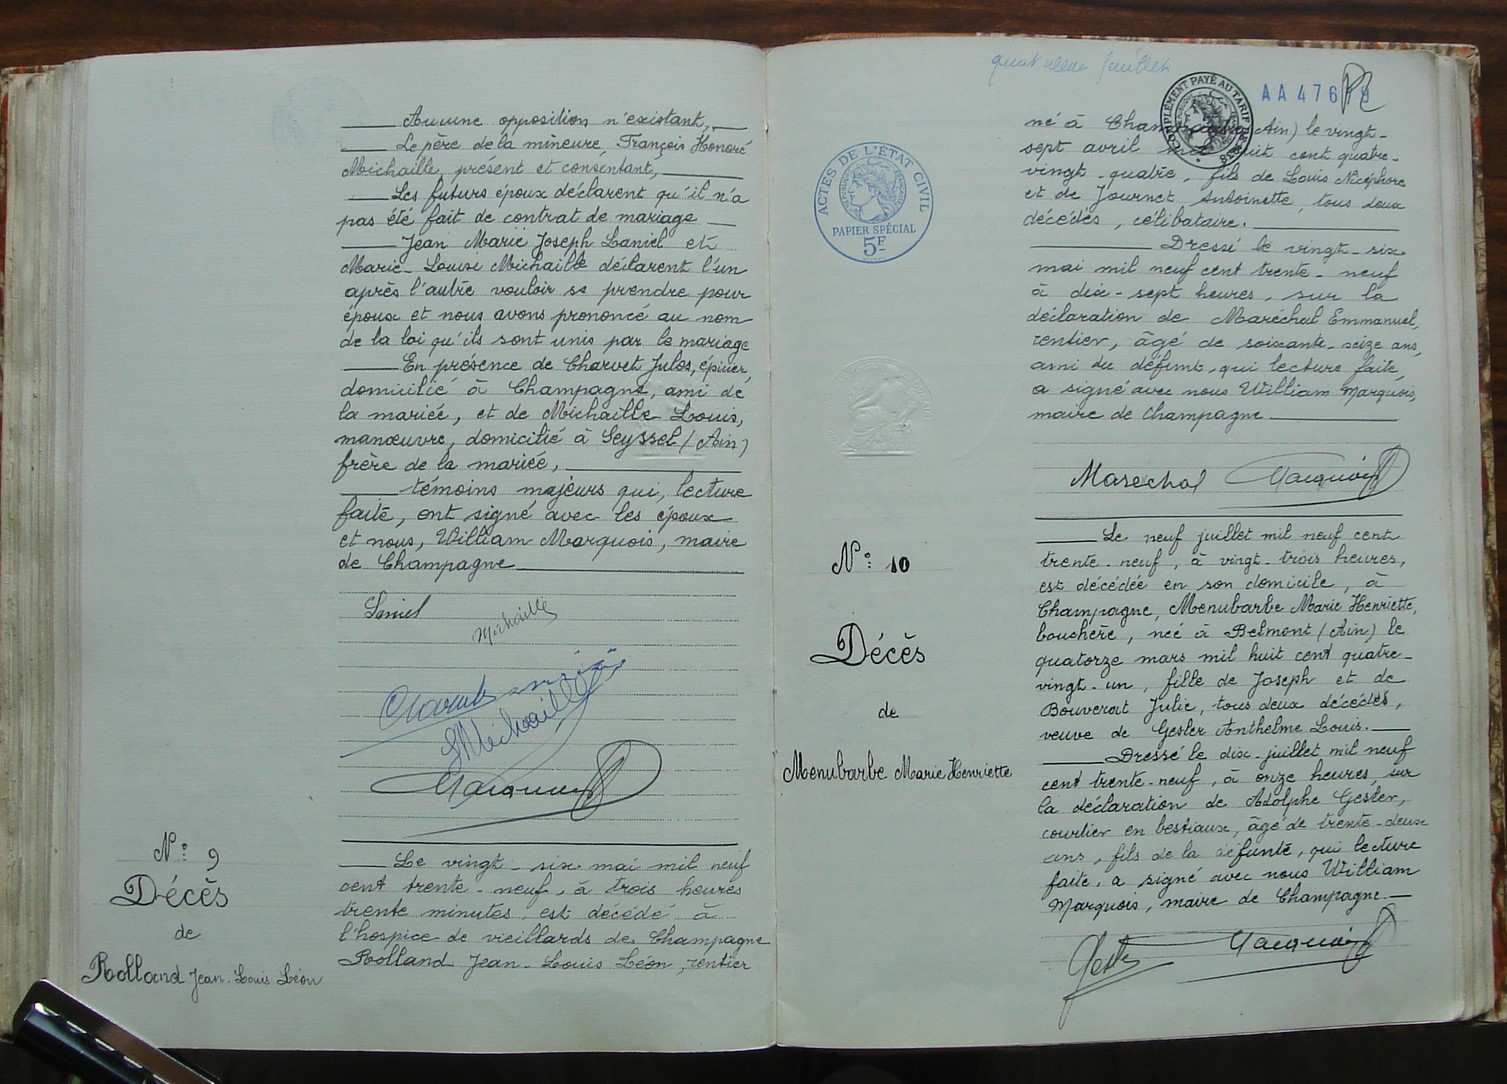 Aucune opposition n'existant,
Le père de la mineure, François Honoré
Michaille, présent et consentant,
Les futurs époux déclarent qu'il n'a
pas été fait de contrat de mariage
Jean Marie Joseph Laniel et
Marie-Louise Michaille déclarent l'un
après l'autre vouloir se prendre pour
époux et nous avons prononcé au nom
de la loi qu'ils sont unis par le mariage
En présence de Charvet Jules, épicier
domicilié à Champagne, ami de
la mariée, et de Michaille Louis,
manœuvre, domicilié à Seyssel (Ain)
frère de la mariée,
témoins majeurs qui, lecture
faite, ont signé avec les époux
et nous, William Marquois, maire
de Champagne
Laniel
Michaille
Michaille
N° 9
Décès
de
Rolland Jean-Louis Léon
Le vingt-six mai mil neuf
cent trente-neuf, à trois heures
trente minutes, est décédé à
l'hospice de vieillards de Champagne
Rolland Jean-Louis Léon, rentier
juillet
COMPLÉMENT PAYÉ AU TARIF
AA 476
né à (Ain) le vingt-
sept avril cent quatre-
vingt-quatre, fils de Louis Nicéphore
et de Journet Antoinette, tous deux
décédés, célibataire.
Dressé le vingt-six
mai mil neuf cent trente-neuf
à dix-sept heures, sur la
déclaration de Maréchal Emmanuel,
rentier, âgé de soixante-seize ans,
ami du défunt, qui lecture faite,
a signé avec nous William Marquois,
maire de Champagne
Marechal Marquois
ACTES DE L'ÉTAT CIVIL
PAPIER SPÉCIAL
5F
N° 10
Décès
de
Menubarbe Marie Henriette
Le neuf juillet mil neuf cent
trente-neuf, à vingt-trois heures,
est décédée en son domicile, à
Champagne, Menubarbe Marie Henriette,
bouchère, née à Belmont (Ain) le
quatorze mars mil huit cent quatre-
vingt-un, fille de Joseph et de
Bouverat Julie, tous deux décédés,
veuve de Gesler Anthelme Louis.
Dressé le dix juillet mil neuf
cent trente-neuf, à onze heures, sur
la déclaration de Adolphe Gesler,
courtier en bestiaux, âgé de trente-deux
ans, fils de la défunte, qui lecture
faite, a signé avec nous William
Marquois, maire de Champagne
Marquois